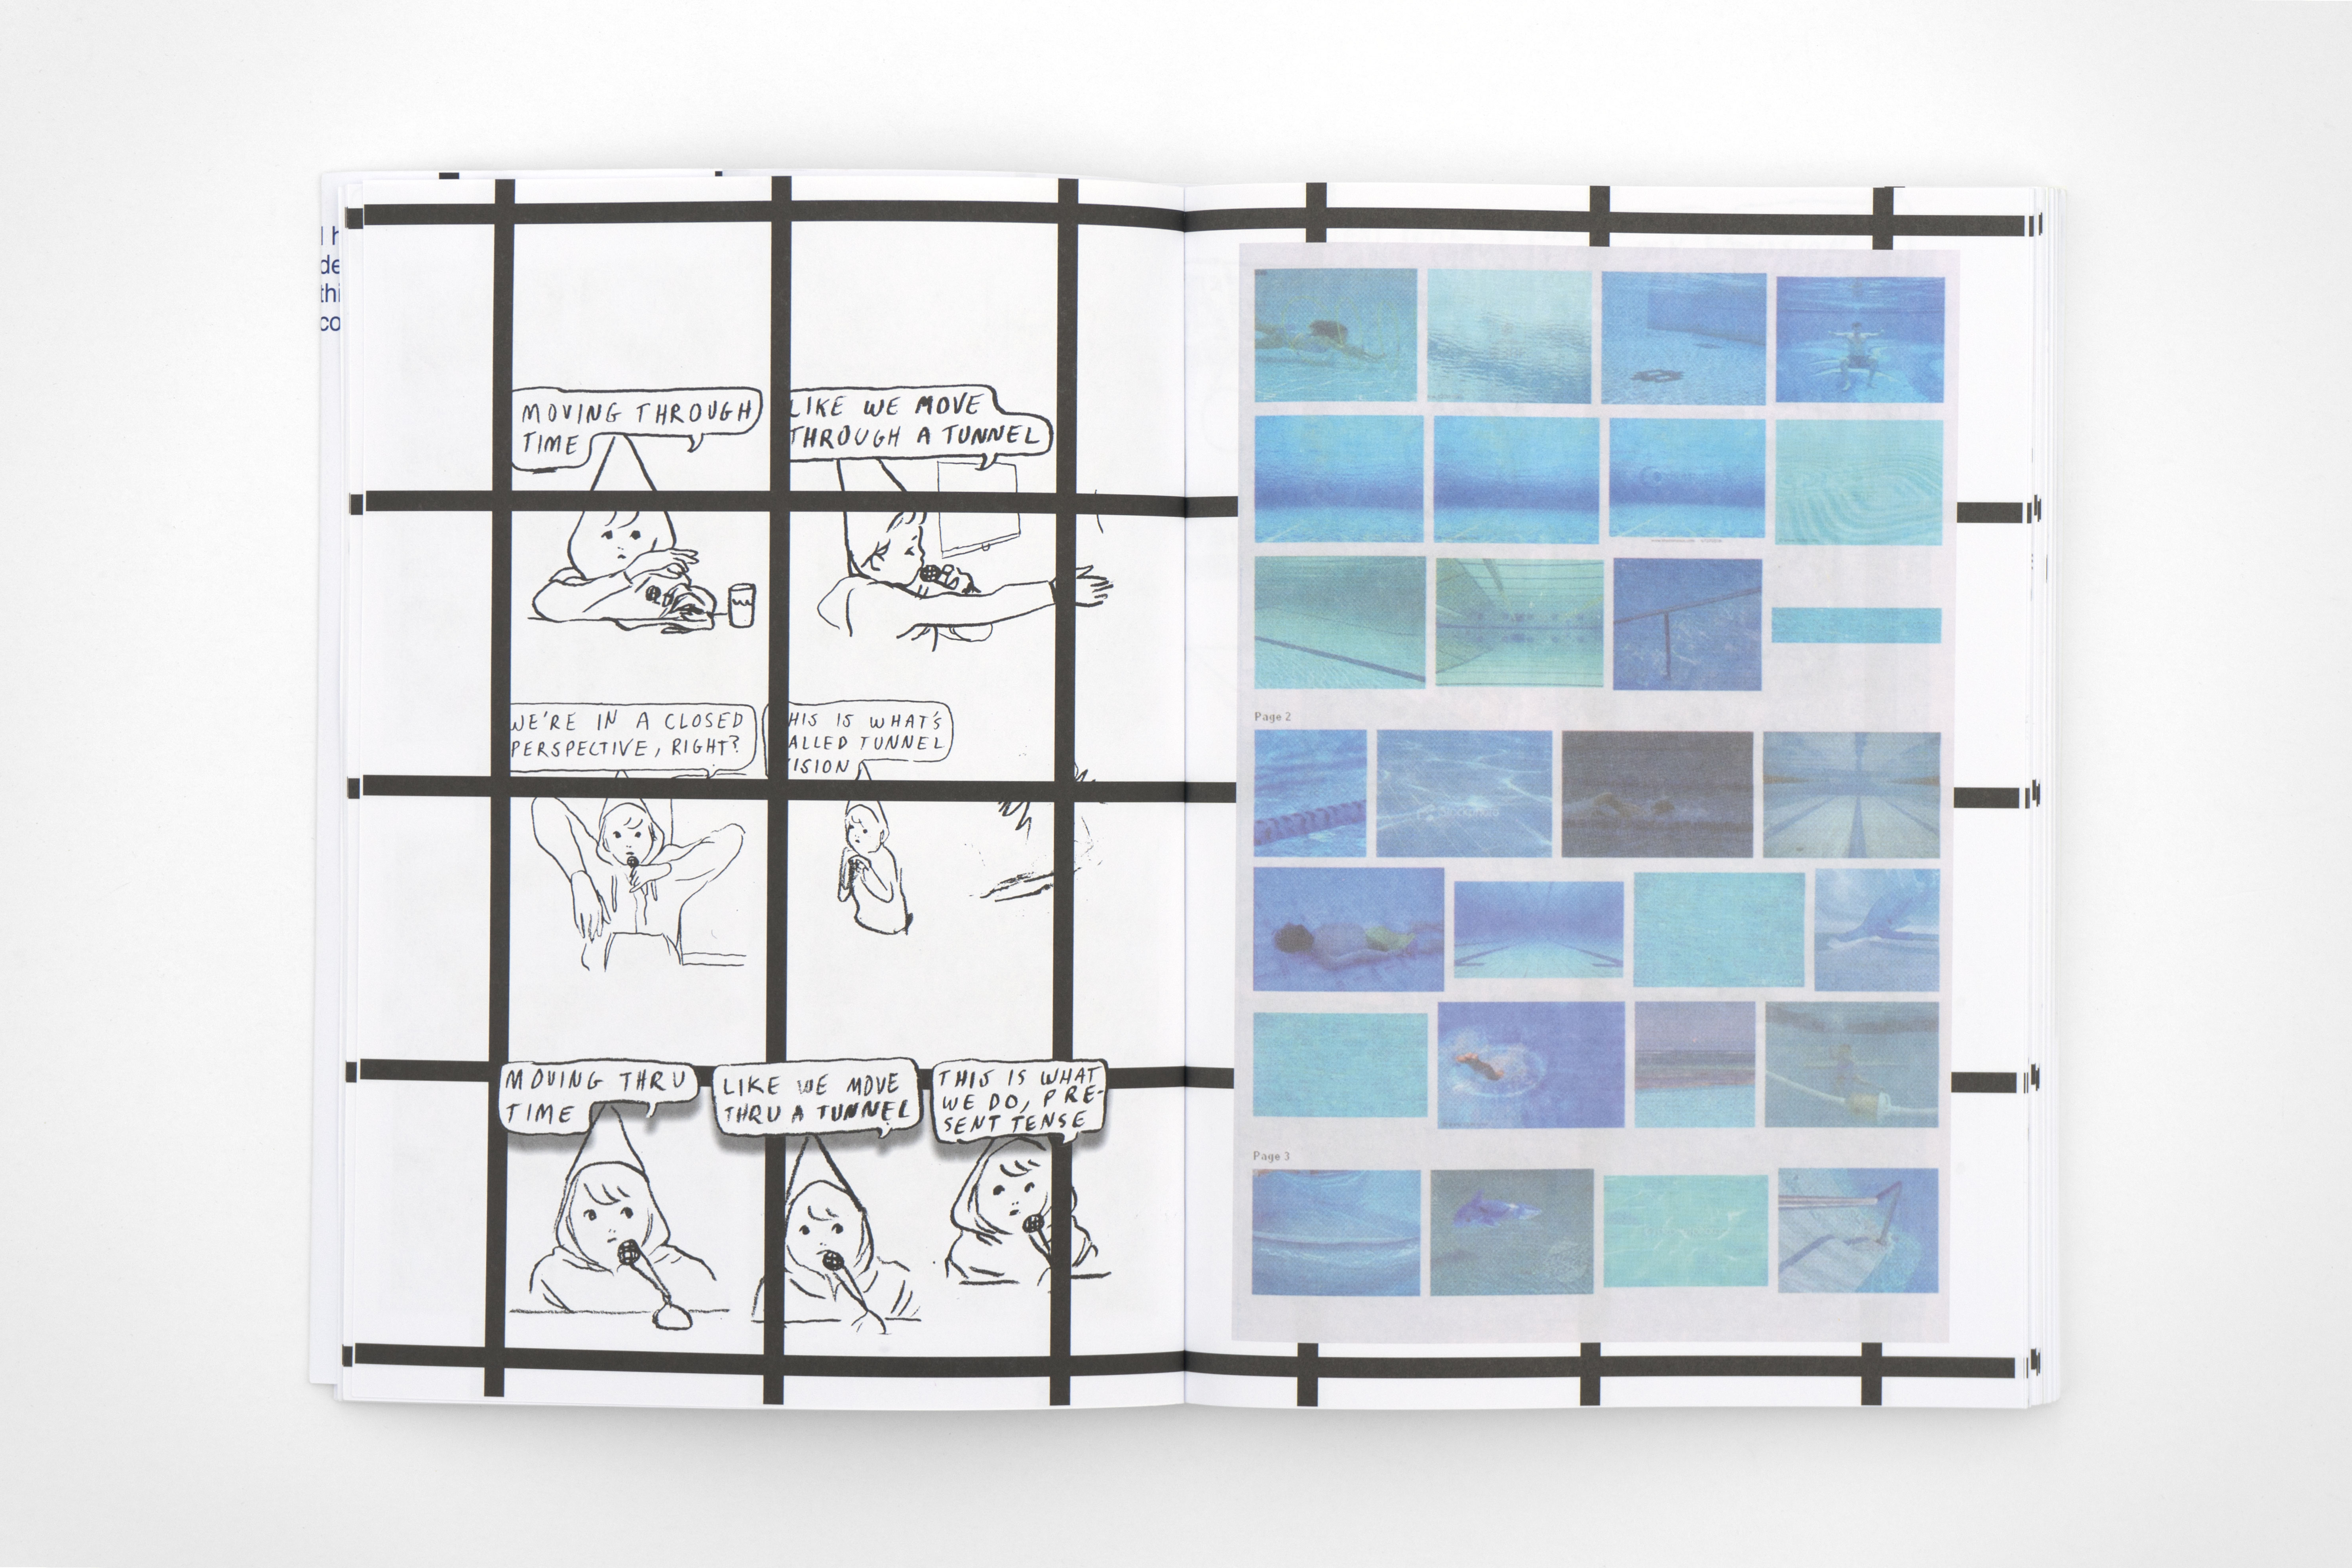 I h
de
thi
co
MOVING THROUGH
TIME
LIKE WE MOVE
THROUGH A TUNNEL
WE'RE IN A CLOSED
PERSPECTIVE, RIGHT?
HIS IS WHAT'S
ALLED TUNNEL
ISION
MOVING THRU
TIME
LIKE WE MOVE
THRU A TUNNEL
THIS IS WHAT
WE DO, PRE-
SENT TENSE
Page 2
Page 3